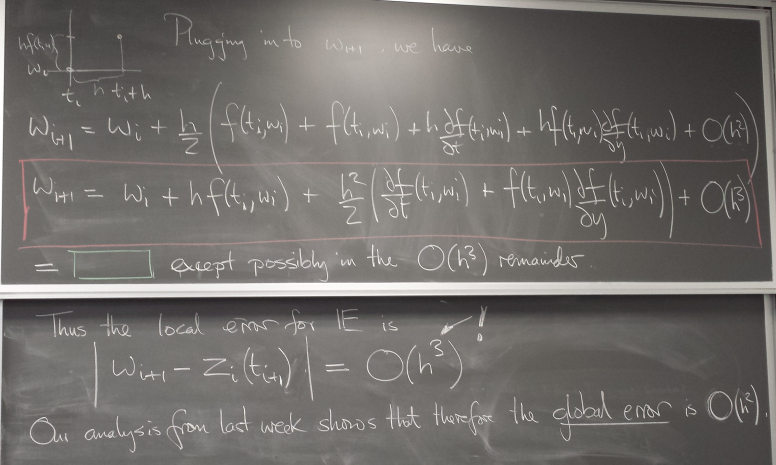 Plugging in to w_{i+1}, we have
hf(t_i,w_i)
w_i
t_i h t_i+h
w_{i+1} = w_i + h/2 ( f(t_i,w_i) + f(t_i,w_i) + h ∂f/∂t (t_i,w_i) + hf(t_i,w_i) ∂f/∂y (t_i,w_i) + O(h²) )
w_{i+1} = w_i + hf(t_i,w_i) + h²/2 ( ∂f/∂t (t_i,w_i) + f(t_i,w_i) ∂f/∂y (t_i,w_i) ) + O(h³)
= except possibly in the O(h³) remainder.
Thus the local error for IE is !
| w_{i+1} - z_i(t_{i+1}) | = O(h³)
Our analysis from last week shows that therefore the global error is O(h²).